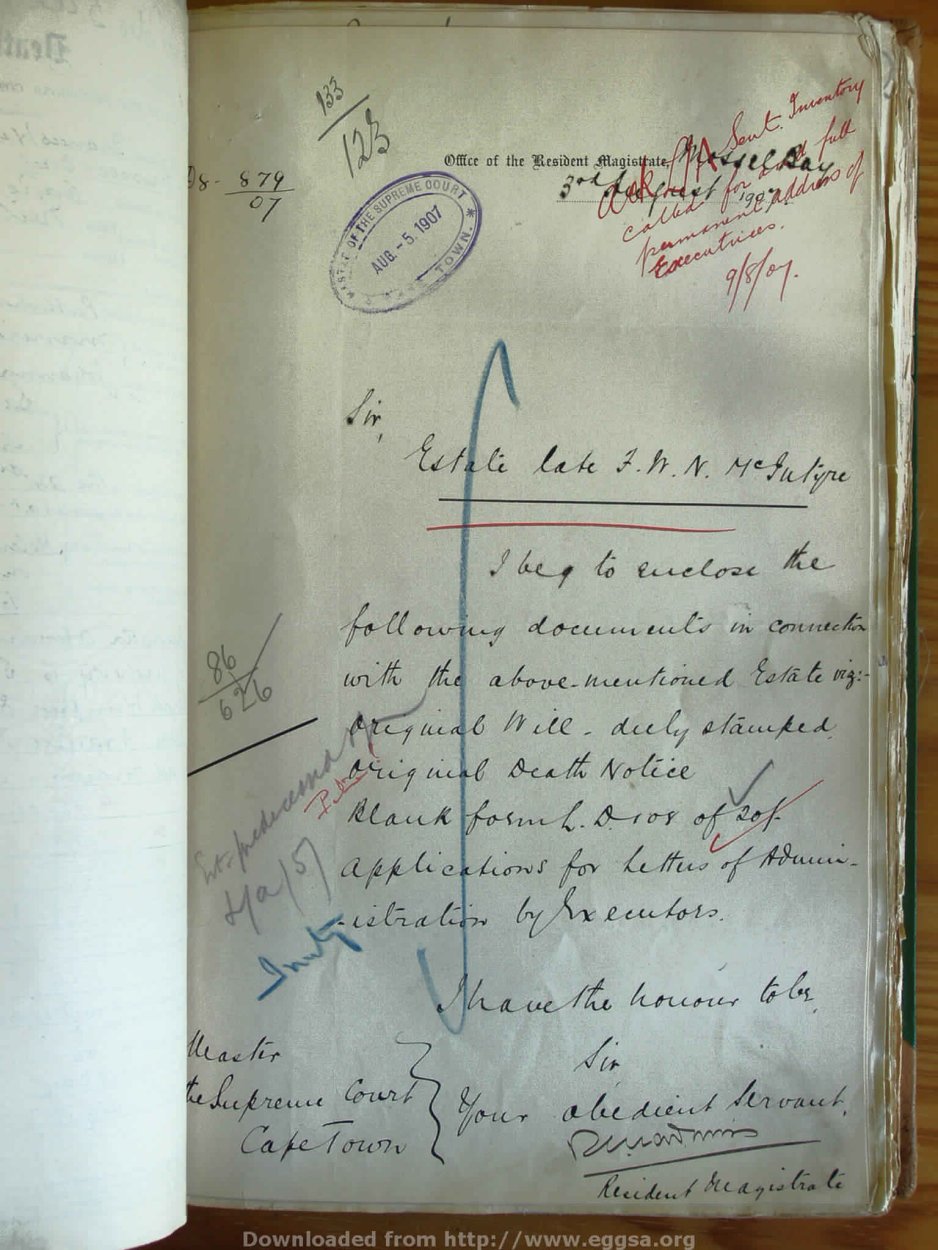 133
123
879
07
MASTER OF THE SUPREME COURT
AUG. - 5. 1907
TOWN.
Office of the Resident Magistrate,
Mossel Bay
3rd August 1907.
Sent. Inventory
called for and full
permanent address of
Executrices.
9/8/07.
Sir,
Estate late F. W. N. McIntyre
I beg to enclose the
following documents in connection
with the above-mentioned Estate viz:-
Original Will - duly stamped.
Original Death Notice
Blank form L. D. 108 of 20/-
Applications for Letters of Admin-
-istration by Executors.
86
626
I have the honour to be,
Sir
Your obedient Servant,
Resident Magistrate
Master
the Supreme Court
Cape Town
Downloaded from http://www.eggsa.org